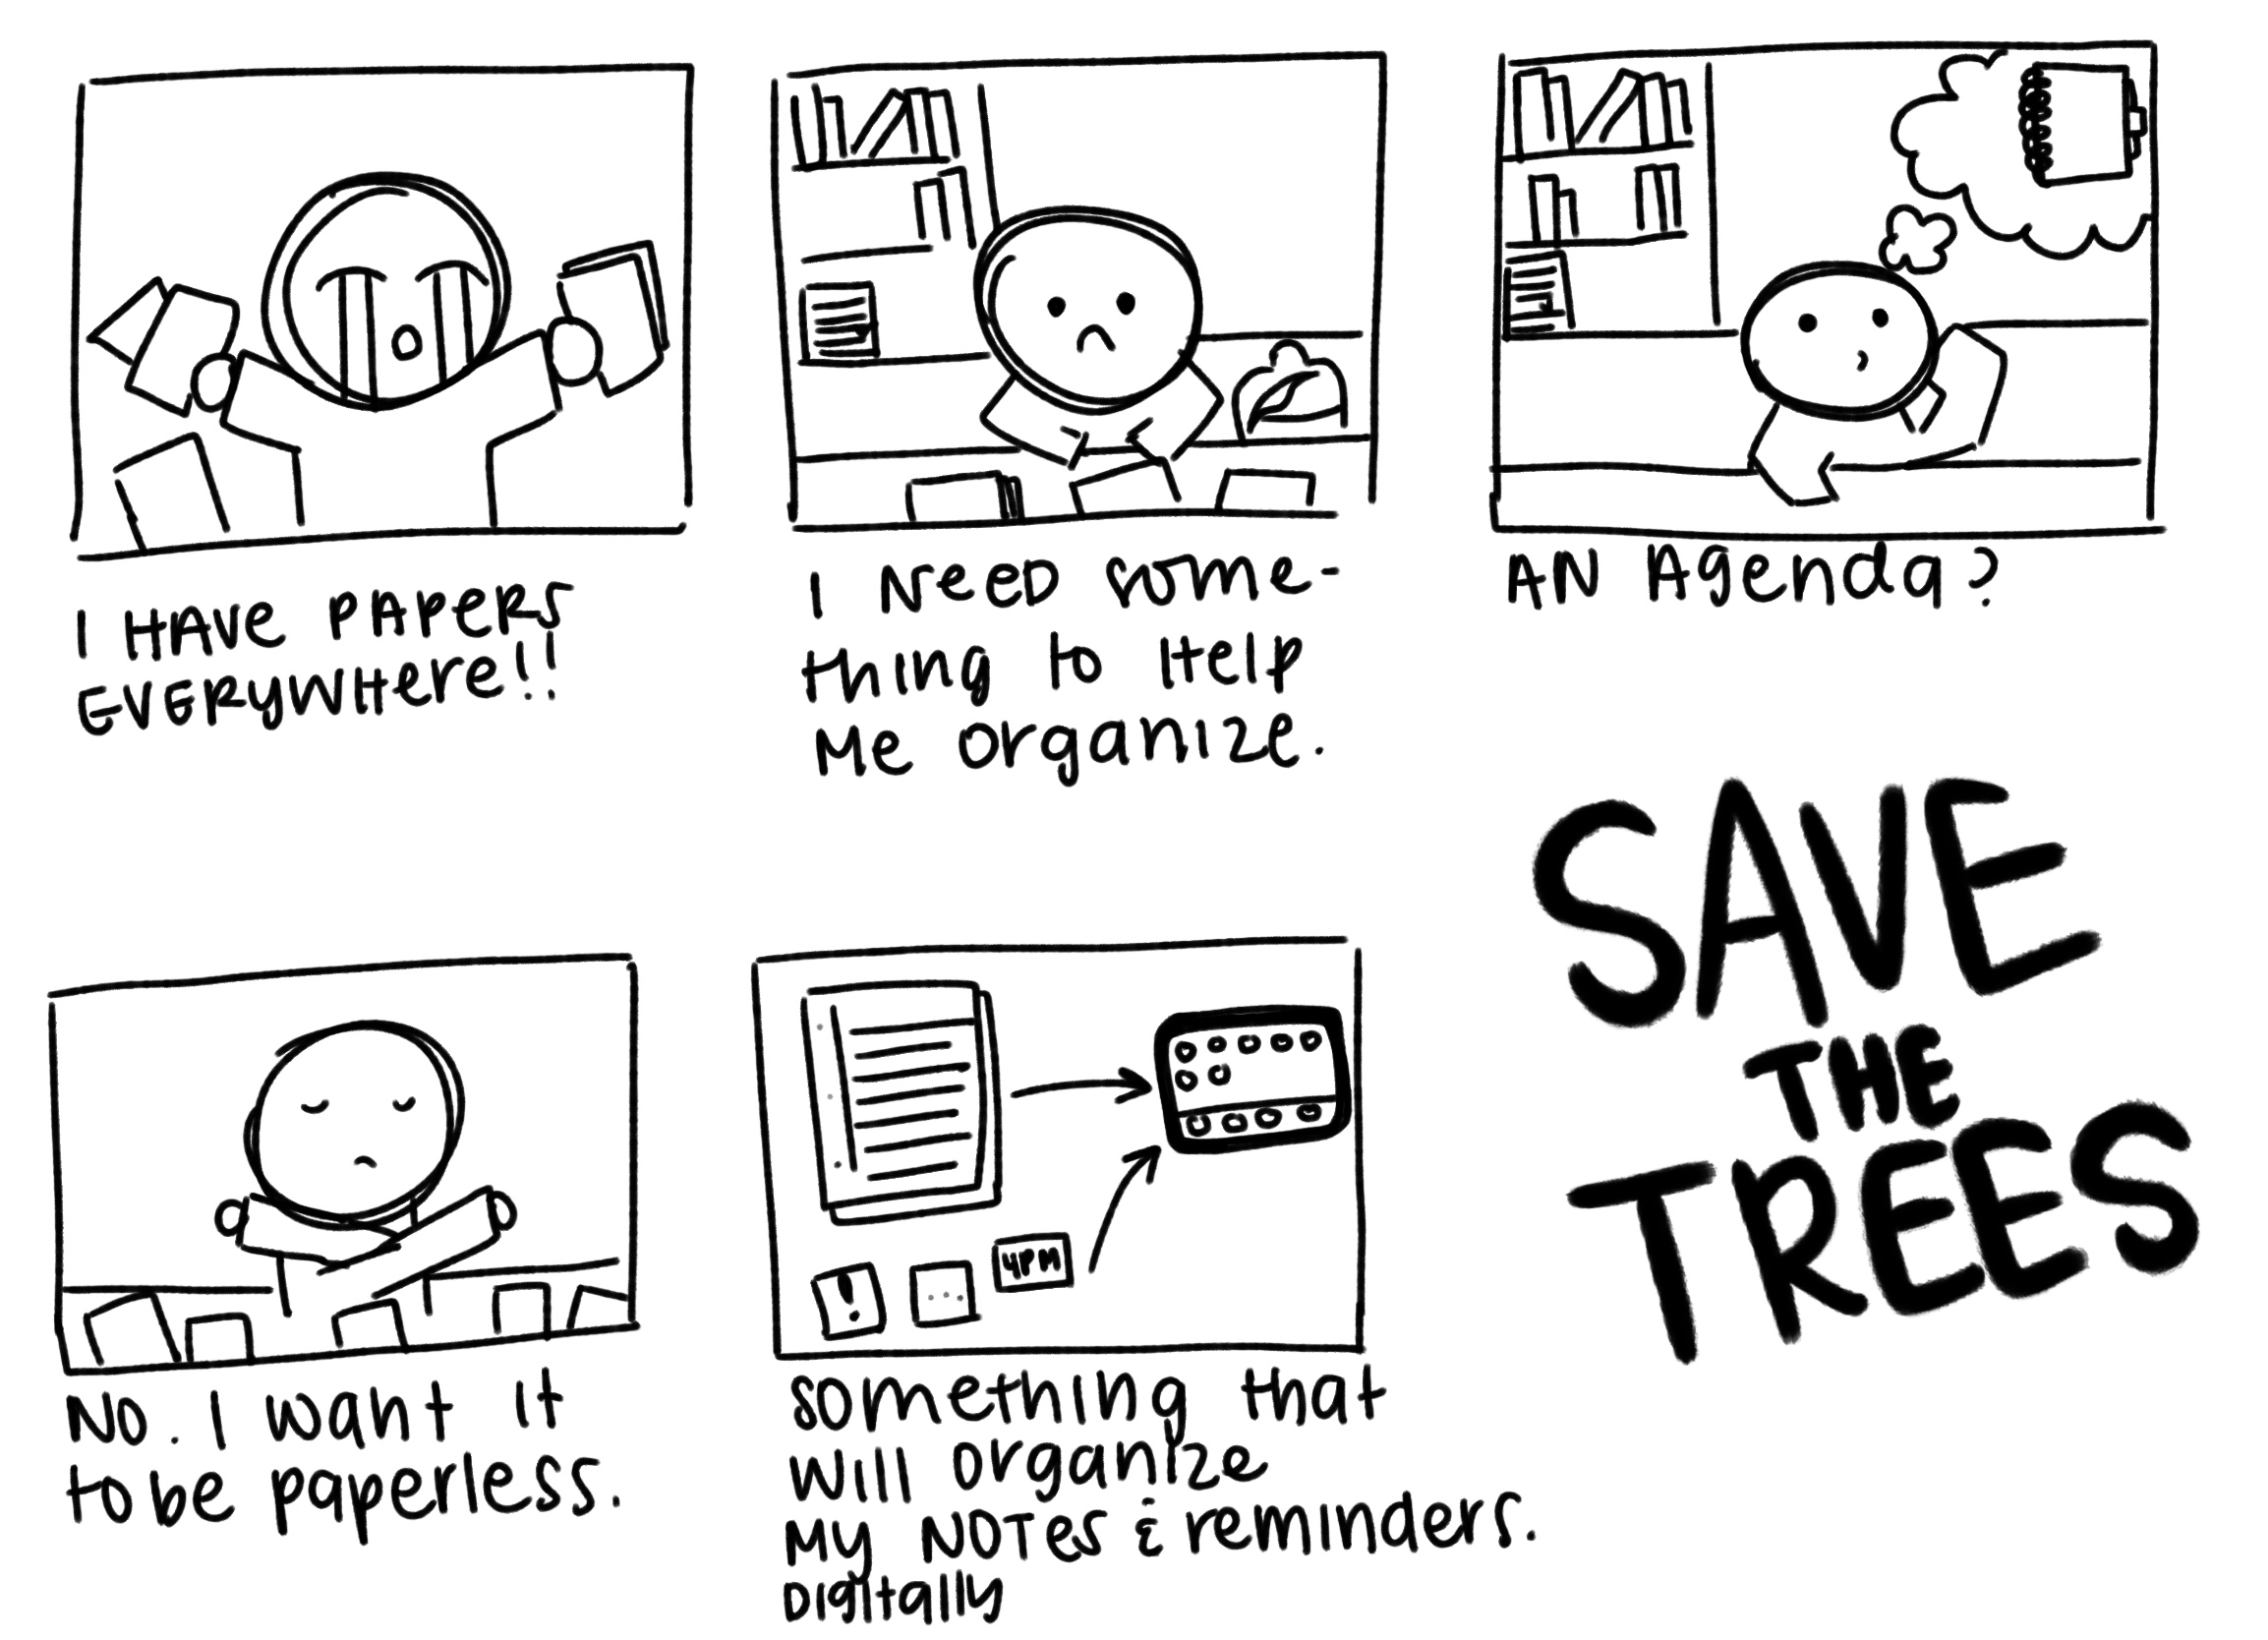 I HAVE PAPERS
EVERYWHERE!!
I NEED SOME-
thing to Help
Me organize.
AN Agenda?
SAVE
THE
TREES
NO. I want it
to be paperless.
4PM
!
...
something that
will organize
MY NOTES & reminders.
Digitally